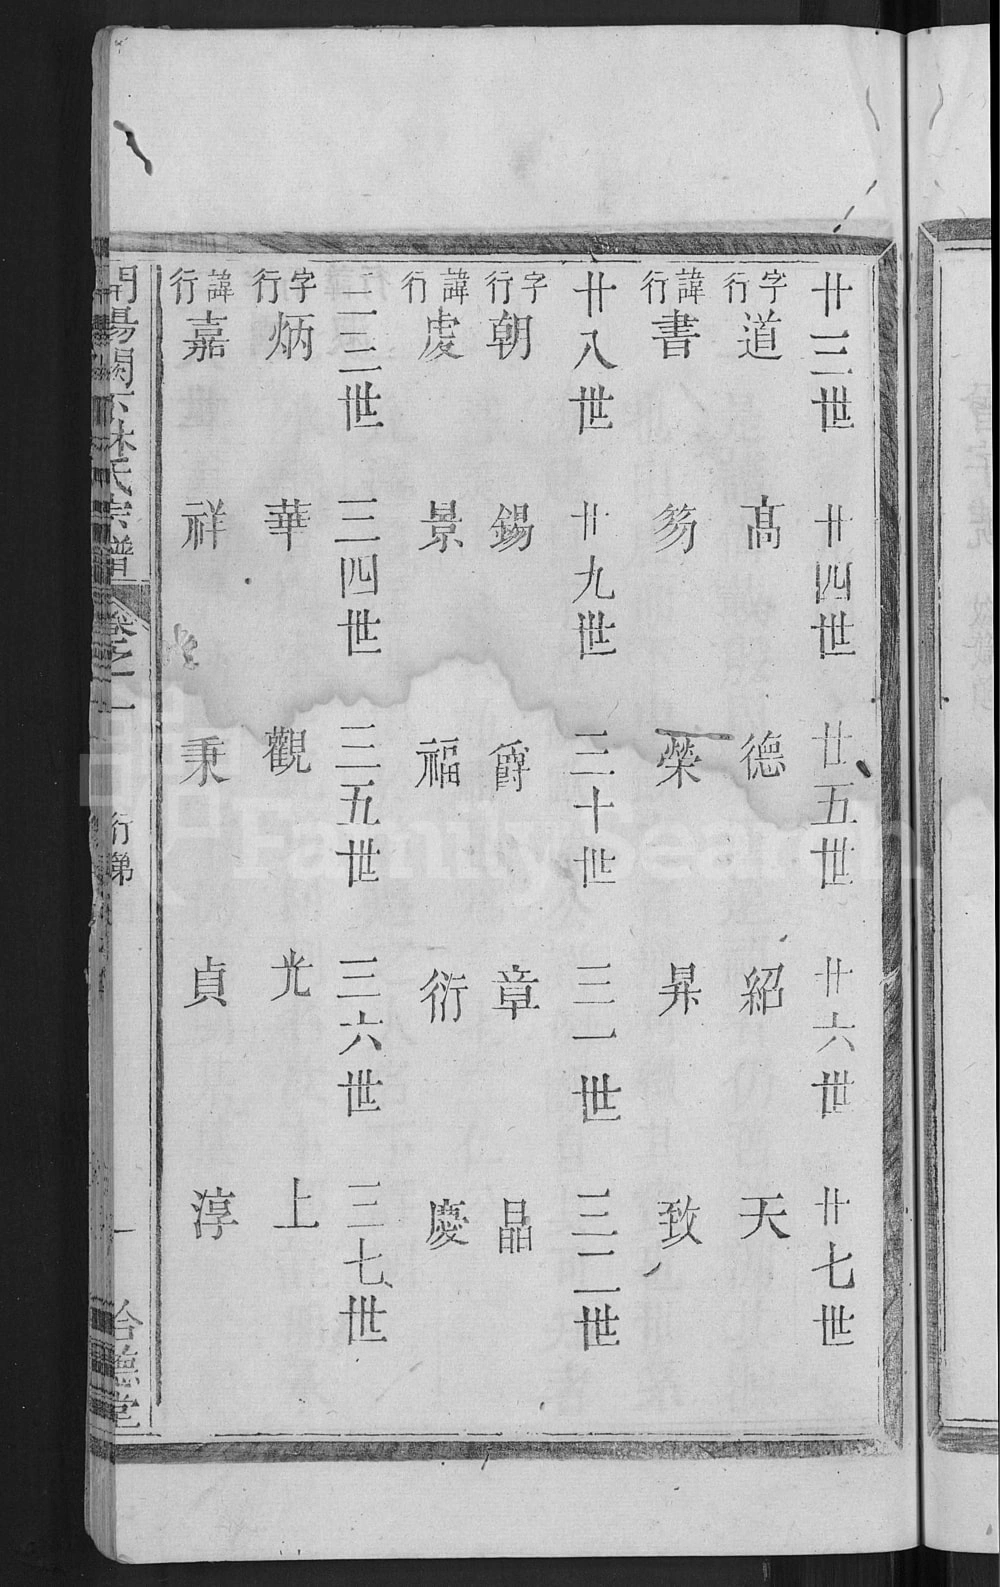 廿三世　廿四世　廿五世　廿六世　廿七世
字行道　高　德　紹　天
諱行書　芴　榮　昇　致
廿八世　廿九世　三十世　三一世　三二世
字行朝　錫　爵　章　晶
諱行虔　景　福　衍　慶
三三世　三四世　三五世　三六世　三七世
字行炳　華　觀　光　上
諱行嘉　祥　秉　貞　淳
林氏宗譜　卷之一　行第　一　合德堂
FamilySearch